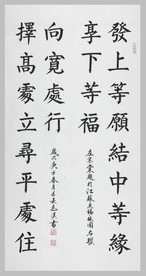 發上等願結中等緣
享下等福
左宗棠題於江蘇無錫梅園
擇髙處立尋平處住
向寬處行
歲次庚子春月